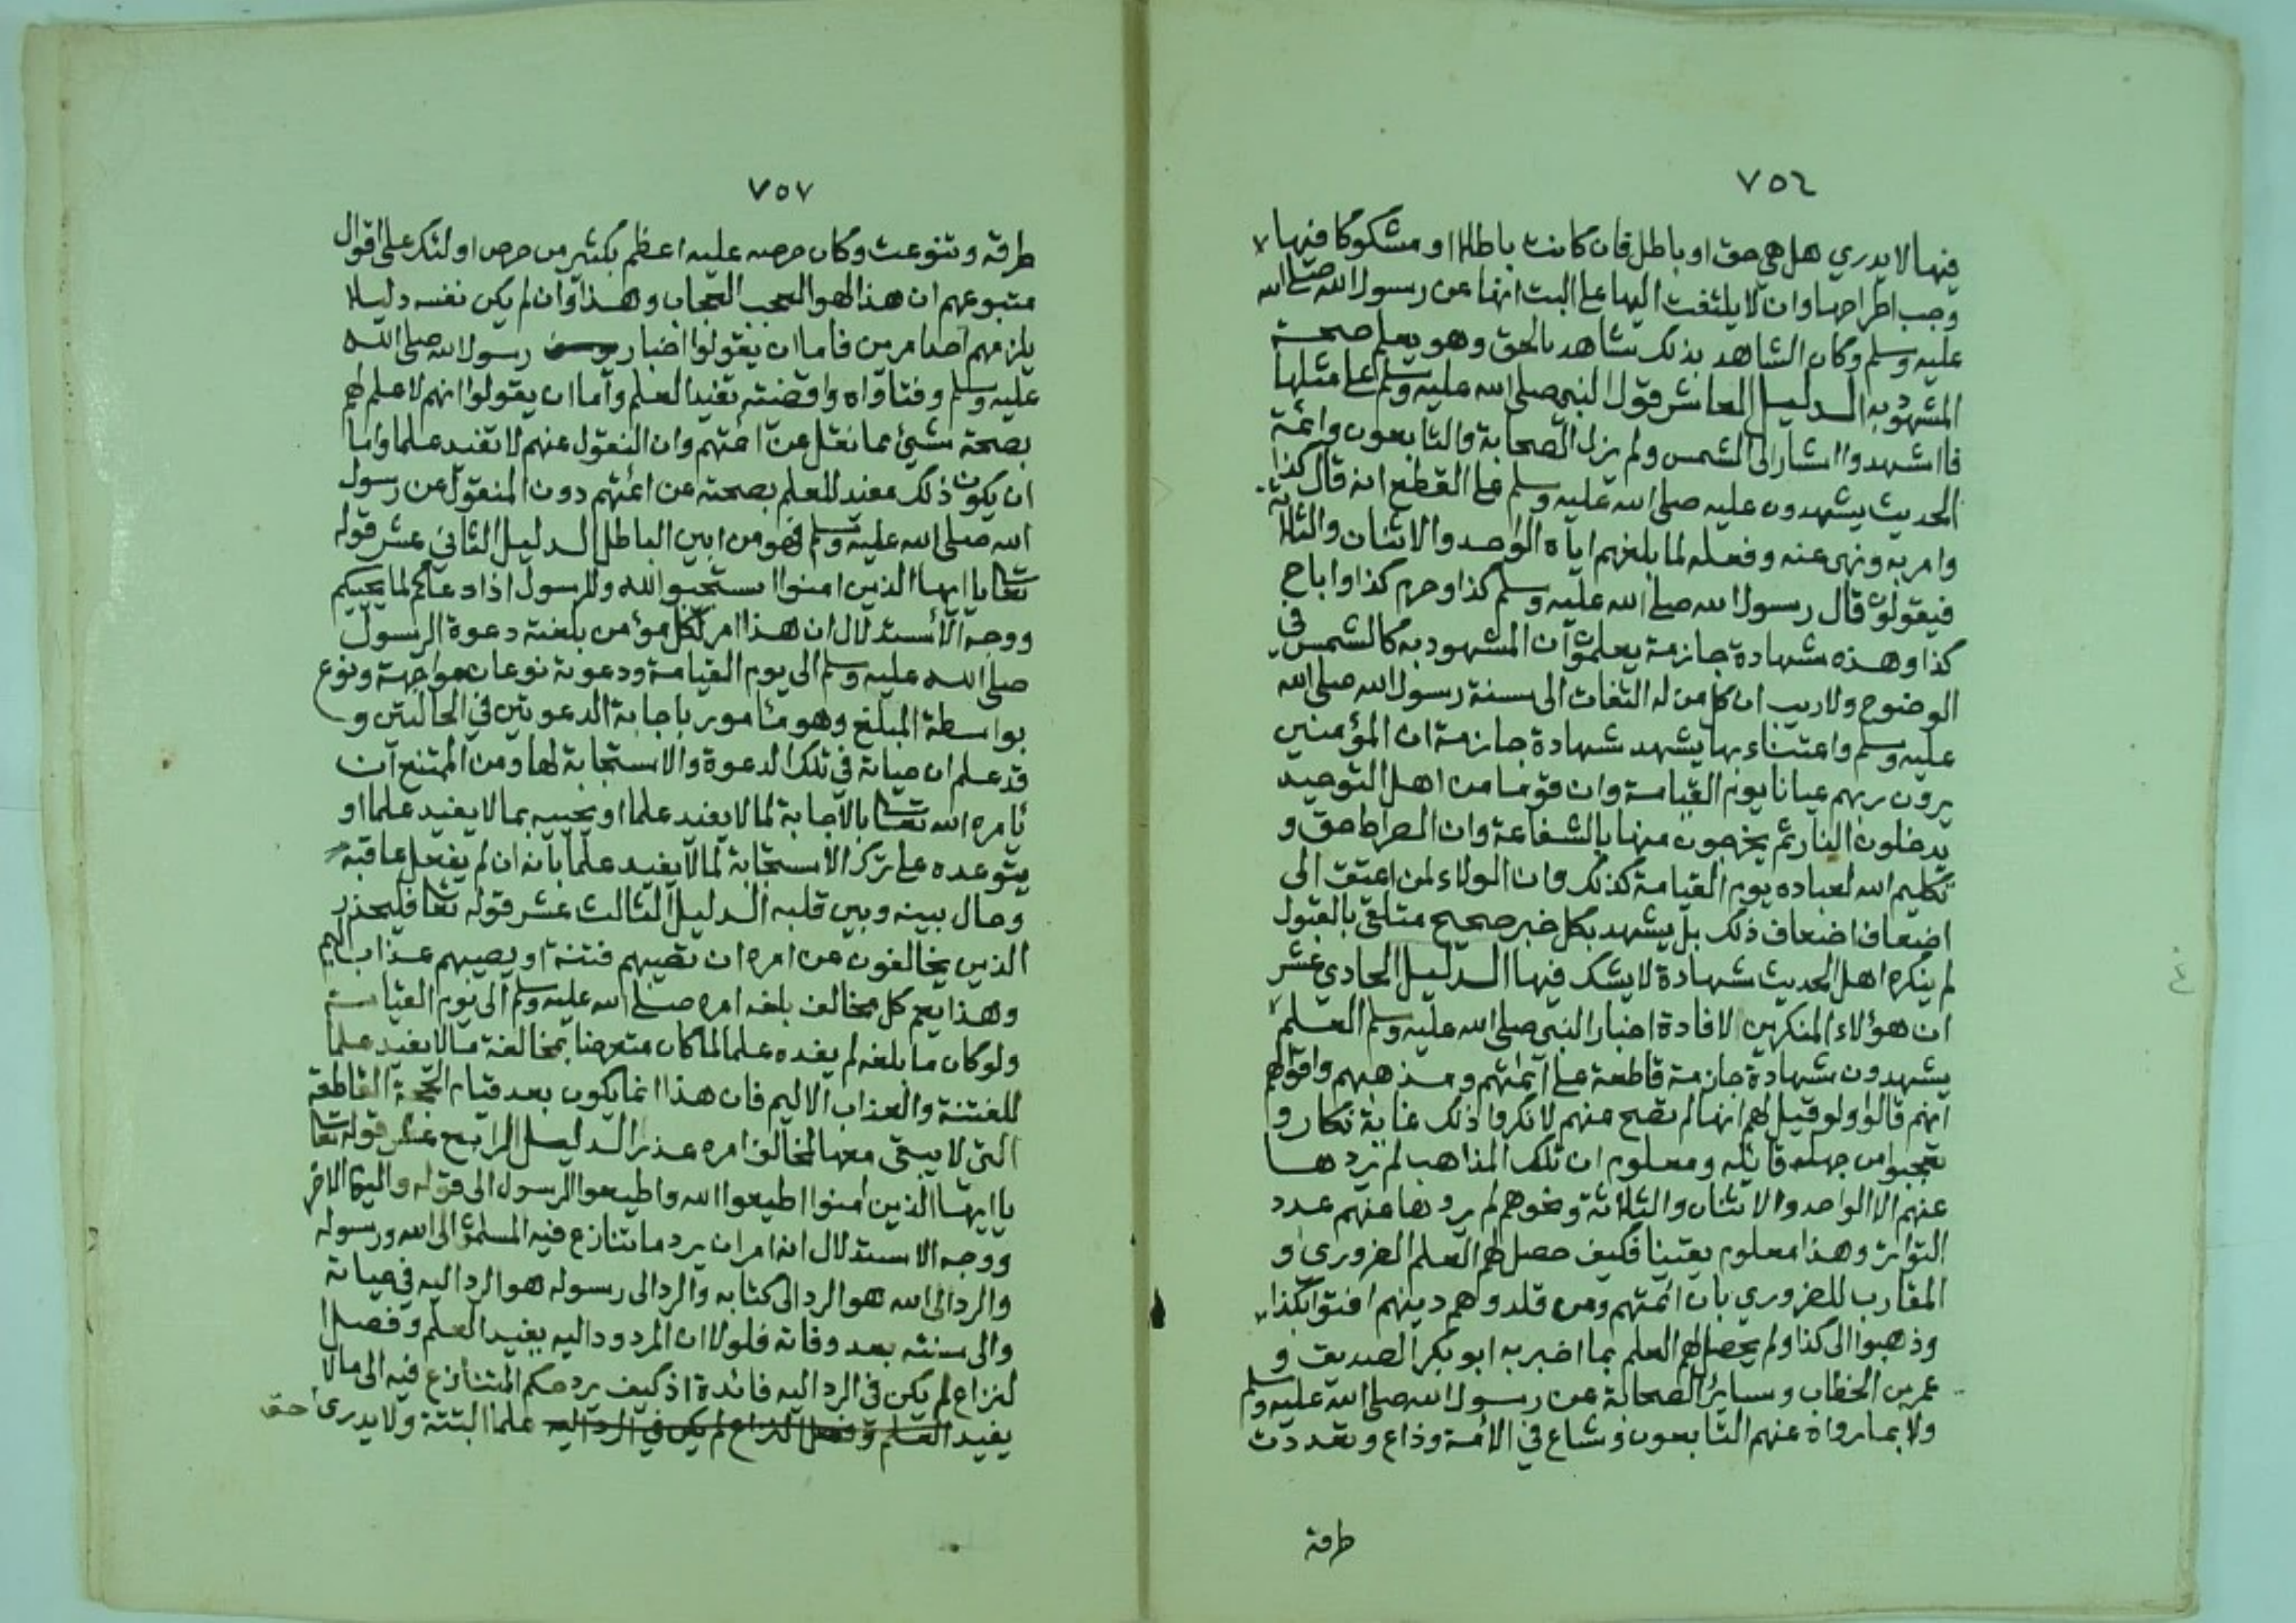 ٧٥٦
فيها لا يدري هل هي حق او باطل فان كانت باطلا او مشكوكا فيها
وجب اطراحها وان لا يلتفت اليها على البت انها عن رسول الله صلى الله
عليه وسلم وكان الشاهد بذلك شاهد بالحق وهو يعلم صحة
المشهود به الدليل العاشر قول النبي صلى الله عليه وسلم على مثلها
فاشهدوا اشار الى الشمس ولم يزل الصحابة والتابعون وائمة
الحديث يشهدون عليه صلى الله عليه وسلم على القطع انه قال كذا
وامر به ونهى عنه وفعله لما بلغهم اياه الواحد والاثنان والثلاثة
فيقولون قال رسول الله صلى الله عليه وسلم كذا وحرم كذا واباح
كذا وهذه شهادة جازمة يعلمون ان المشهود به كالشمس في
الوضوح ولا ريب ان كل من له التفات الى سنة رسول الله صلى الله
عليه وسلم واعتناء بها يشهد شهادة جازمة ان المؤمنين
يرون ربهم عيانا يوم القيامة وان قوما من اهل التوحيد
يدخلون النار ثم يخرجون منها بالشفاعة وان الصراط حق و
تكليم الله لعباده يوم القيامة كذلك وان الولاء لمن اعتق الى
اضعاف اضعاف ذلك بل يشهد بكل خبر صحيح متلقى بالقبول
لم ينكره اهل الحديث شهادة لا يشك فيها الدليل الحادي عشر
ان هؤلاء المنكرين لافادة اخبار النبي صلى الله عليه وسلم العلم
يشهدون شهادة جازمة قاطعة على ائمتهم ومذهبهم واقوالهم
انهم قالوا ولو قيل لهم انها لم تصح منهم لانكروا ذلك غاية نكار و
تعجبوا من جهل قايله ومعلوم ان تلك المذاهب لم يردها
عنهم الا الواحد والاثنان والثلاثة ونحوهم لم يردها عنهم عدد
التواتر وهذا معلوم يقينا فكيف حصل لهم العلم الضروري و
المقارب للضروري بان ائمتهم ومن قلدوهم دينهم افتوا بكذا
وذهبوا الى كذا ولم يحصل لهم العلم بما اخبر به ابو بكر الصديق و
عمر بن الخطاب وسائر الصحابة عن رسول الله صلى الله عليه وسلم
ولا بما رواه عنهم التابعون وشاع في الامة وذاع وتعددت
طرقه
٧٥٧
طرقه وتنوعت وكان حرصه عليه اعظم بكثير من حرص اولئك على اقوال
متبوعهم ان هذا لهو العجب العجاب وهذا وان لم يكن نفسه دليلا
يلزمهم احد امرين فاما ان يقولوا اخبار رسول الله صلى الله
عليه وسلم وفتاواه واقضيته تفيد العلم واما ان يقولوا انهم لا علم لهم
بصحة شيئ مما نقل عن ائمتهم وان النقول عنهم لا تفيد علما واما
ان يكون ذلك مفيد للعلم بصحته عن ائمتهم دون المنقول عن رسول
الله صلى الله عليه وسلم فهو من ابين الباطل الدليل الثاني عشر قوله
تعالى يا ايها الذين امنوا استجيبو الله وللرسول اذا دعاكم لما يحييكم
ووجه الاستدلال ان هذا امر لكل مؤمن بلغته دعوة الرسول
صلى الله عليه وسلم الى يوم القيامة ودعوته نوعان مواجهة ونوع
بواسطة المبلغ وهو مأمور باجابة الدعوتين في الحالتين و
قد علم ان حياته في تلك الدعوة والاستجابة لها ومن الممتنع ان
يامره الله تعالى بالاجابة لما لا يفيد علما او يحييه بما لا يفيد علما او
يتوعده على ترك الاستجابة لما لا يفيد علما بانه ان لم يفعل عاقبه
وحال بينه وبين قلبه الدليل الثالث عشر قوله تعالى فليحذر
الذين يخالفون عن امره ان تصيبهم فتنة او يصيبهم عذاب اليم
وهذا يعم كل مخالف بلغه امره صلى الله عليه وسلم الى يوم القيامة
ولو كان ما بلغه لم يفده علما لما كان متعرضا بمخالفة ما لا يفيد علما
للفتنة والعذاب الاليم فان هذا انما يكون بعد قيام الحجة القاطعة
التي لا يبقى معها لمخالف امره عذر الدليل الرابع عشر قوله تعالى
يا ايها الذين امنوا اطيعوا الله واطيعوا الرسول الى قوله واليوم الاخر
ووجه الاستدلال انه امر ان يرد ما تنازع فيه المسلمون الى الله ورسوله
والرد الى الله هو الرد الى كتابه والرد الى رسوله هو الرد اليه في حياته
والى سنته بعد وفاته فلولا ان المردود اليه يفيد العلم وفصل
لنزاع لم يكن في الرد اليه فائدة اذ كيف يرد حكم المتنازع فيه الى مالا
يفيد العلم وفصل النزاع لم يكن في الرد اليه علما البتة ولا يدرى أحق